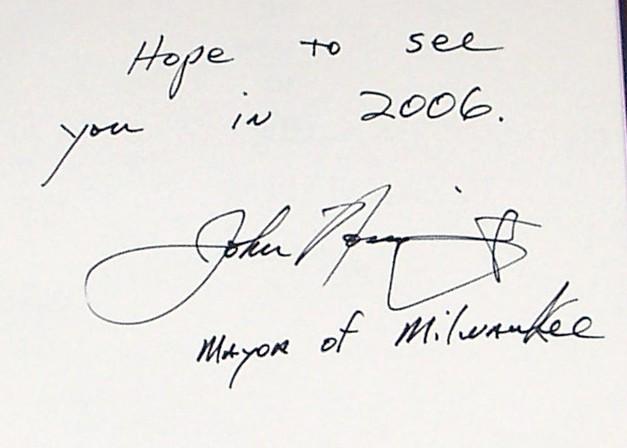 Hope to see
you in 2006.
John
Mayor of Milwaukee